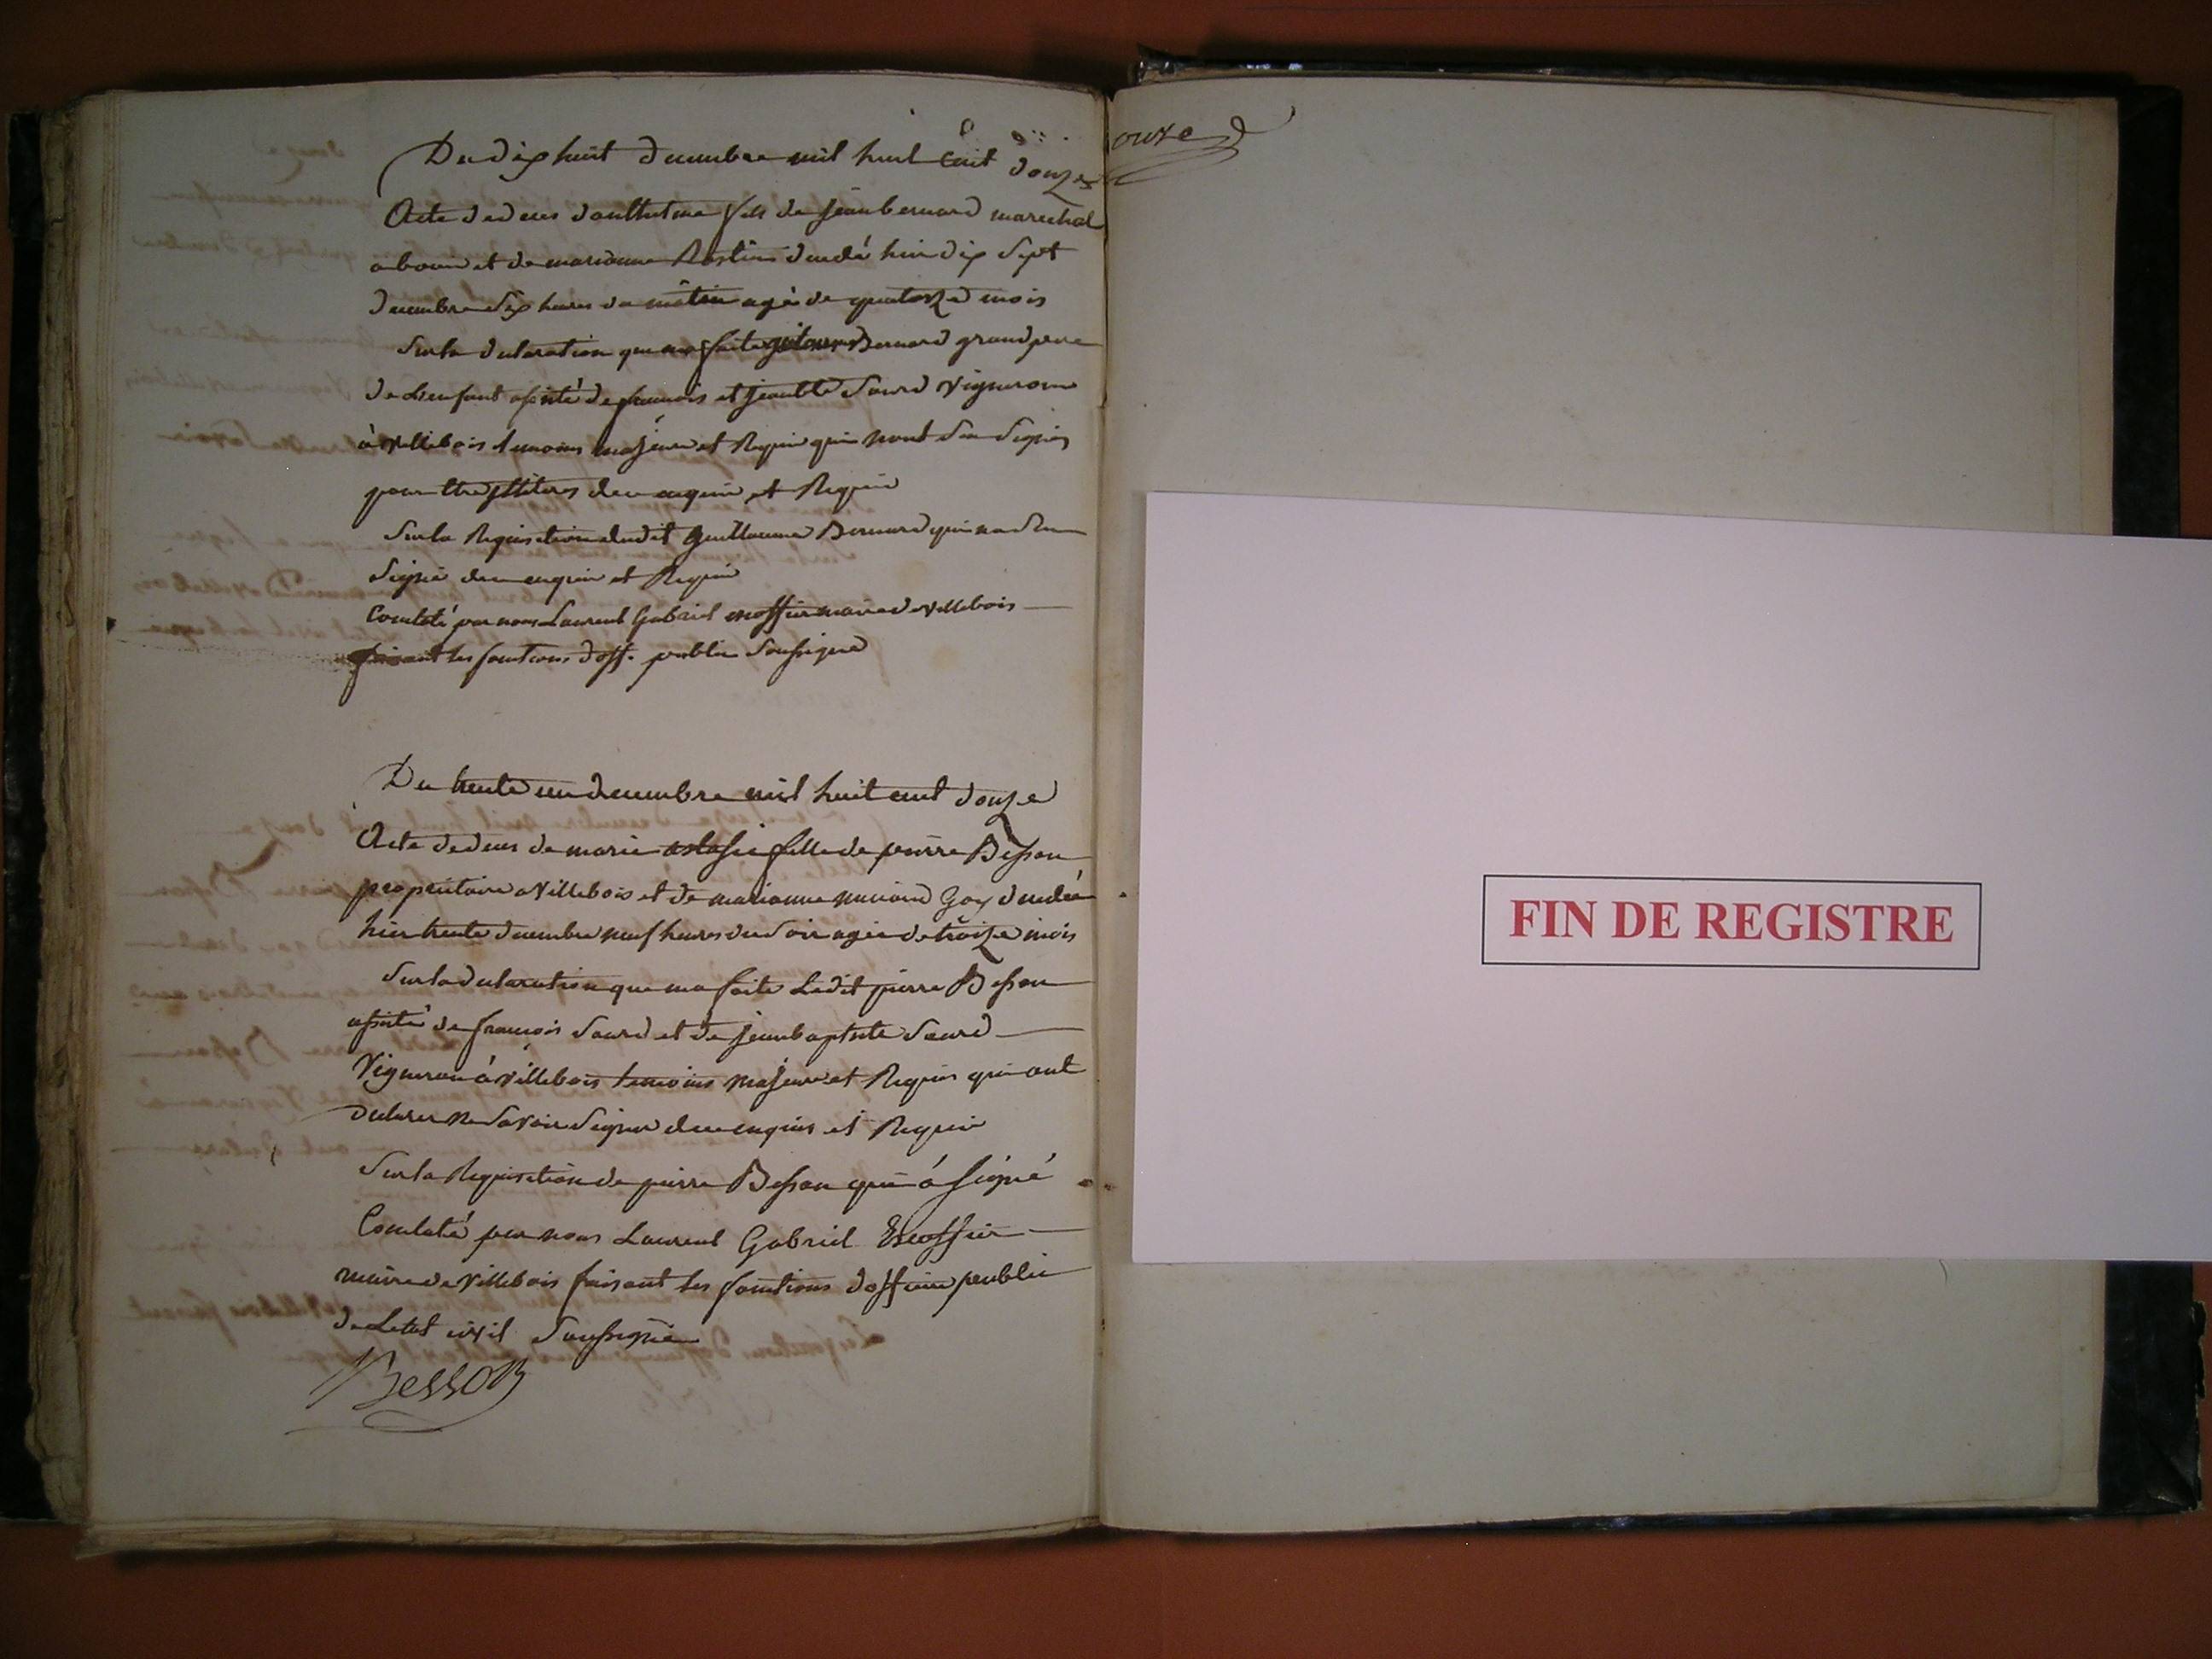 Du dix huit decembre mil huit cent douze
Acte de deces d'anthelme fils de jean bernard marechal
a bouis et de marianne Rostin decedé hier dix Sept
decembre dix heures du matin agé de quatorze mois
Sur la declaration que ma faite guillaume Bernard grand pere
de L'enfant assisté de francois et jean bte Sourd vigneron
à villebois temoins majeurs et Requis qui nont Su Signer
pour etre illiteres de ce enquis et Requis
Sur la Requisition dudit guillaume Bernard qui na Su
Signé de ce enquis et Requis
Constaté par nous Laurent Gabriel escoffier maire de villebois
faisant les fonctions d'off. public Soussigné
Du trente un decembre mil huit cent douze
Acte de deces de marie astasie fille de pierre Besson
proprietaire a Villebois et de marianne Goy decedée
hier trente decembre neuf heures du Soir agée de treize mois
Sur la declaration que ma faite Ledit pierre Besson
assisté de francois Sourd et de jean baptiste Sourd
Vigneron à villebois temoins majeurs et Requis qui ont
declarer ne Savoir Signer de ce enquis et Requis
Sur la Requisition de pierre Besson qui à Signé
Constaté par nous Laurent Gabriel Escoffier
maire de villebois faisant les fonctions d'officier public
de Letat civil Soussigné
Besson
ouze
FIN DE REGISTRE